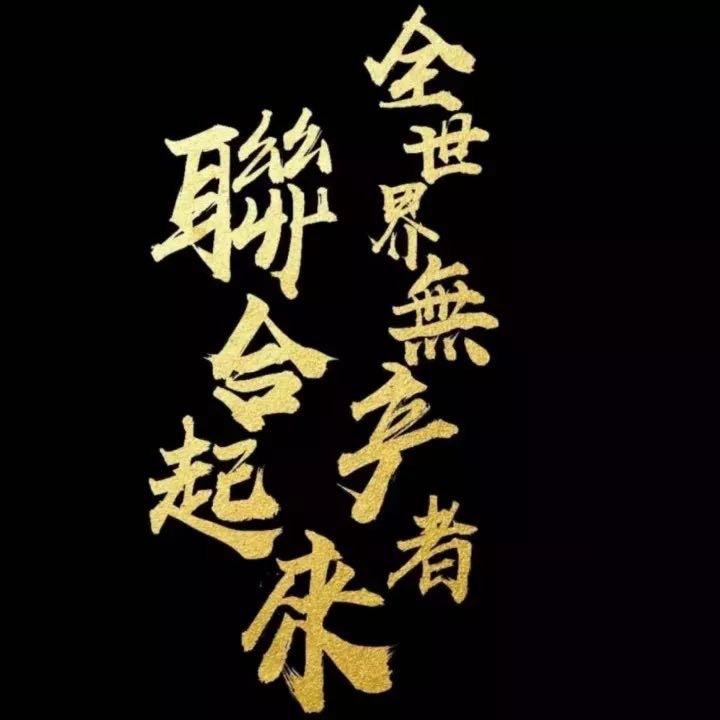 全世界無产者
聯合起來